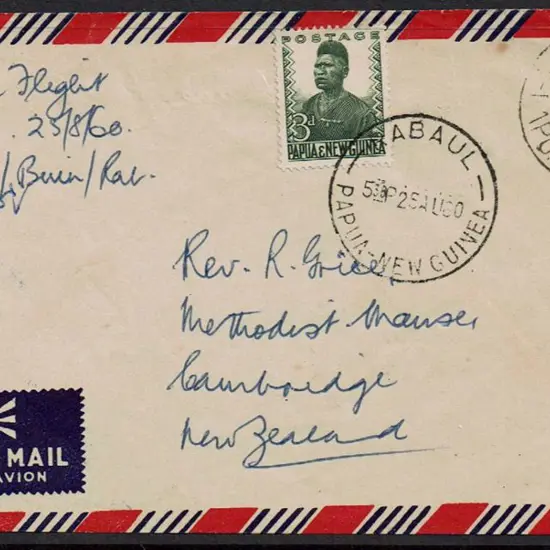 Flight
25/8/60.
Buin/Rab.
POSTAGE
3d
PAPUA & NEW GUINEA
RABAUL
PAPUA-NEW GUINEA
25AU60
Rev. R. Grice,
Methodist Manse,
Cambridge
New Zealand
MAIL
AVION